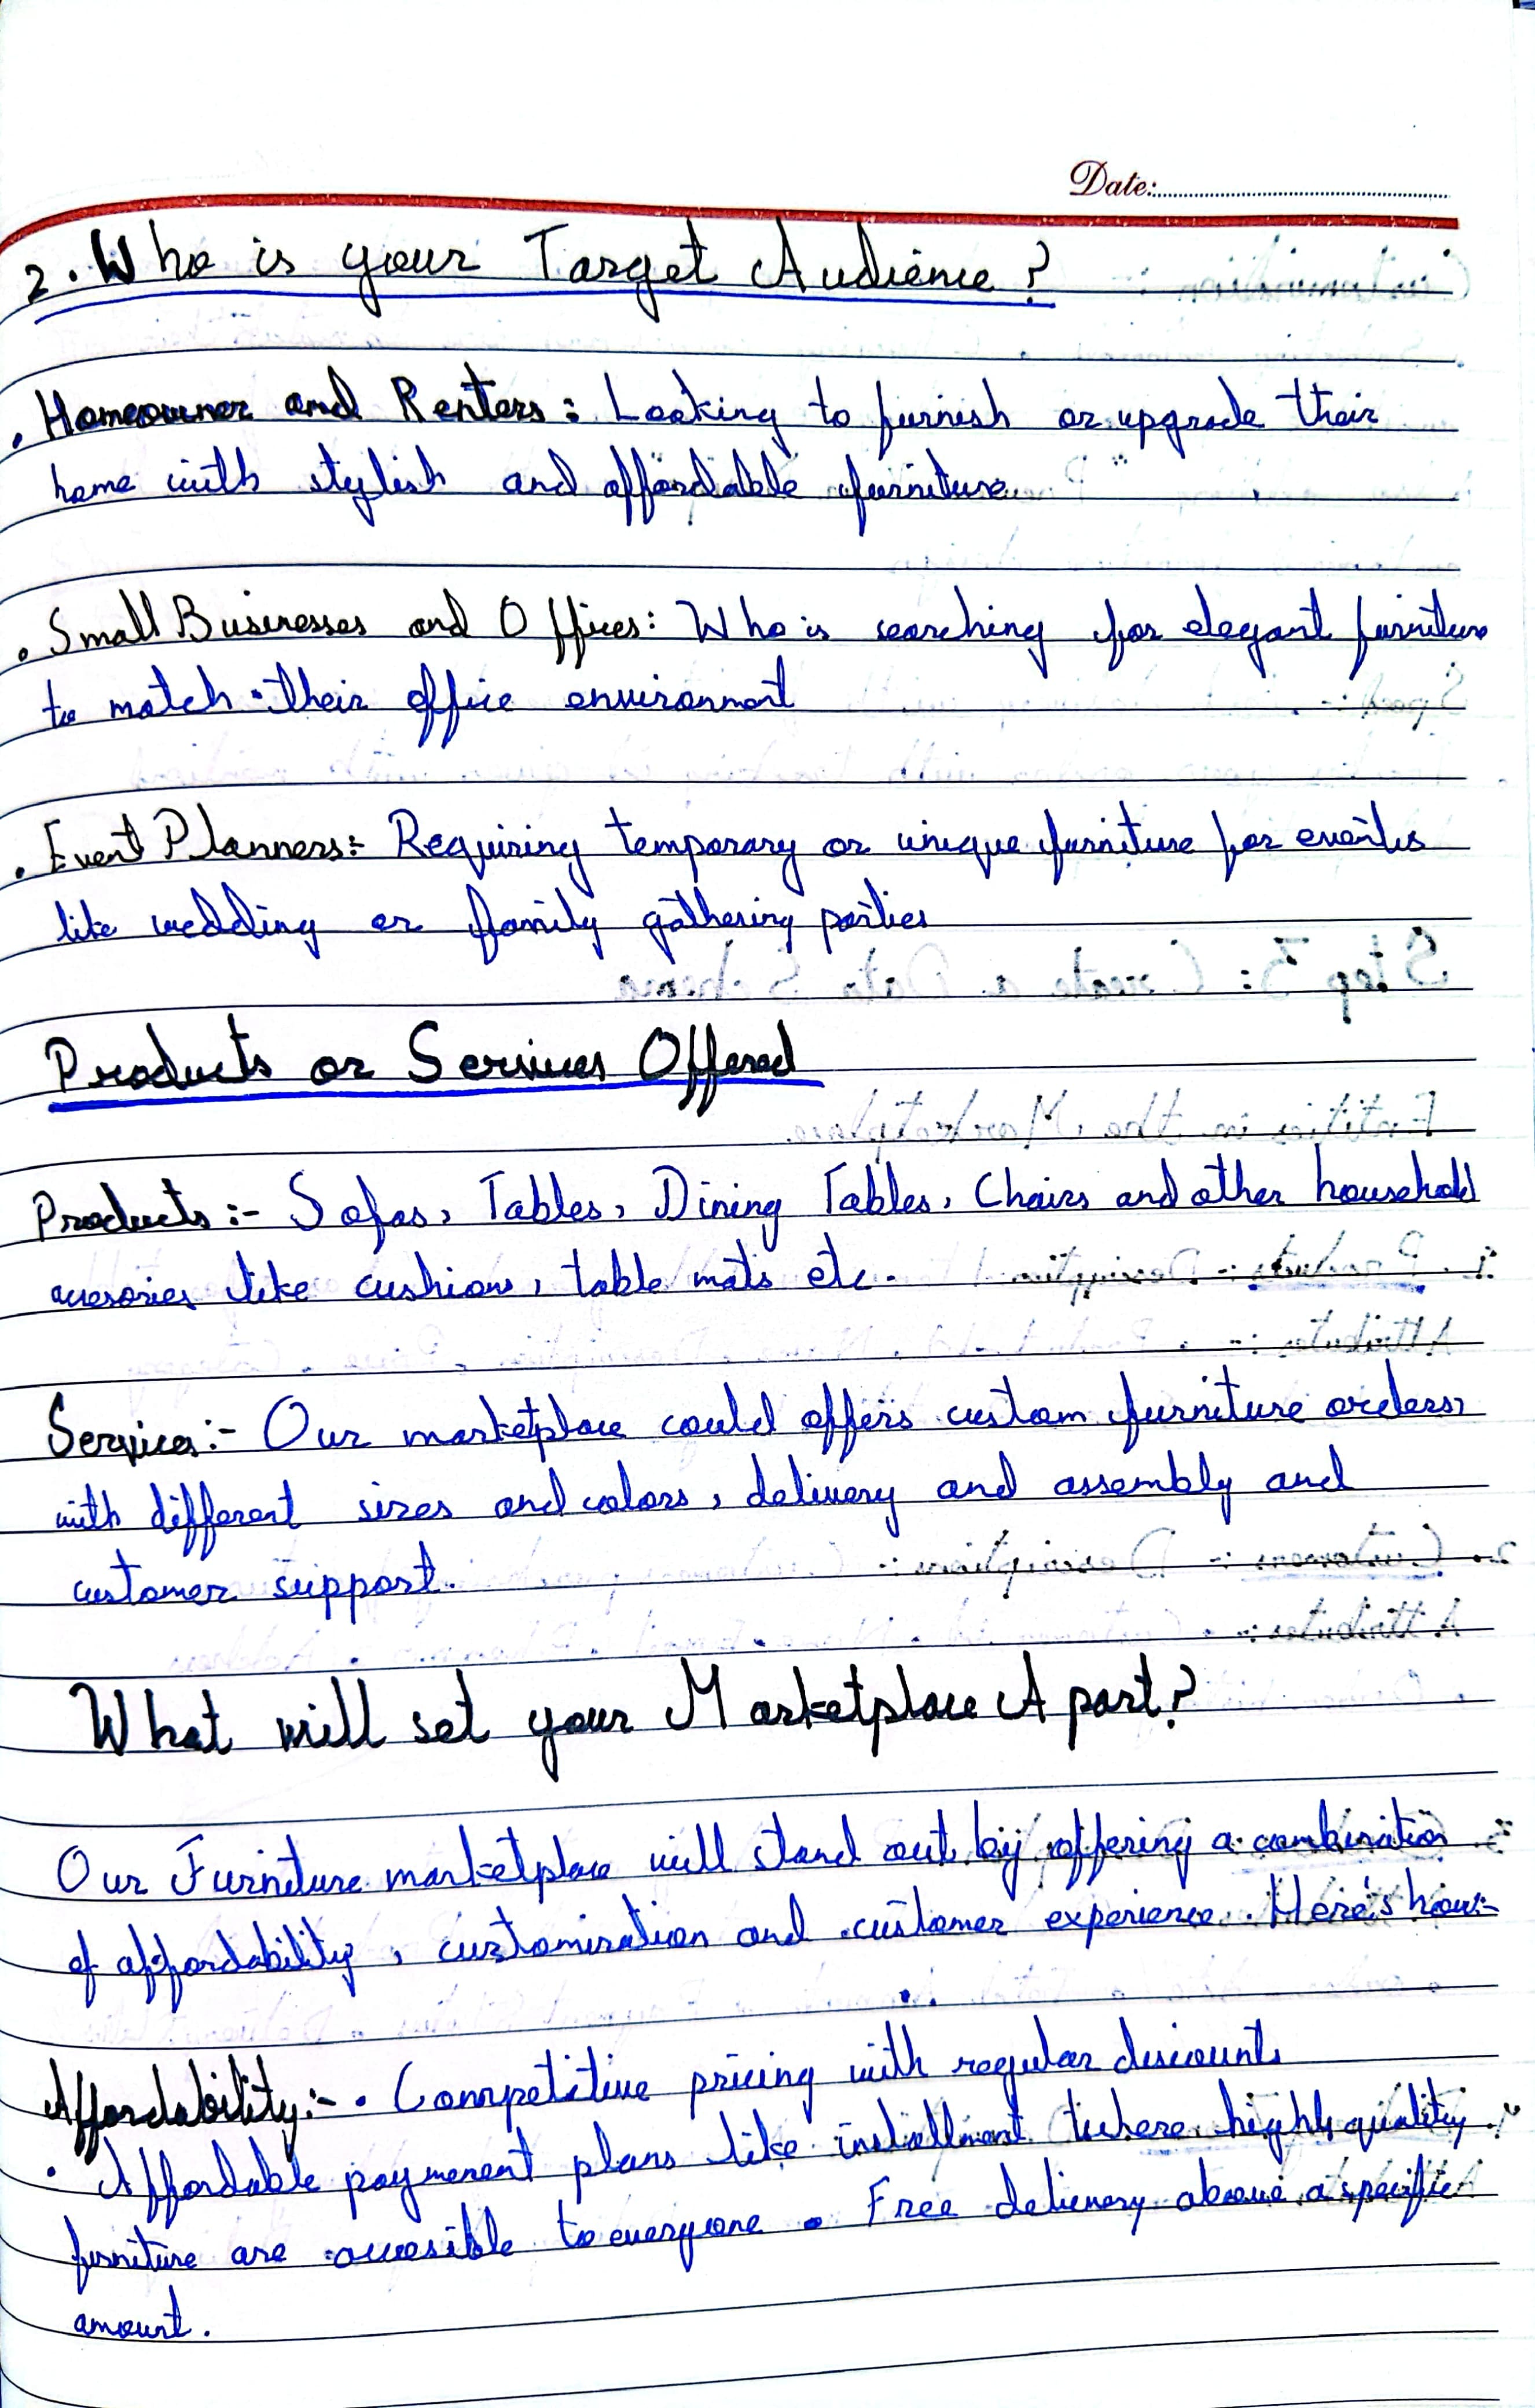 Date:
2. Who is your Target Audience?
• Homeowner and Renters: Looking to furnish or upgrade their
home with stylish and affordable furniture
• Small Businesses and Offices: Who is searching for elegant furniture
to match their office environment
• Event Planners: Requiring temporary or unique furniture for events
like wedding or family gathering parties
Products or Services Offered
Products :- Sofas, Tables, Dining Tables, Chairs and other household
accesories like cushions, table mats etc.
Services :- Our marketplace could offers custom furniture orders,
with different sizes and colors, delivery and assembly and
customer support.
What will set your Marketplace Apart?
Our Furniture marketplace will stand out by offering a combination
of affordability, customization and customer experience. Here's how:-
Affordability :- • Competitive pricing with regular discounts
• Affordable payment plans like installment where high quality
furniture are accesible to everyone • Free delivery above a specific
amount.